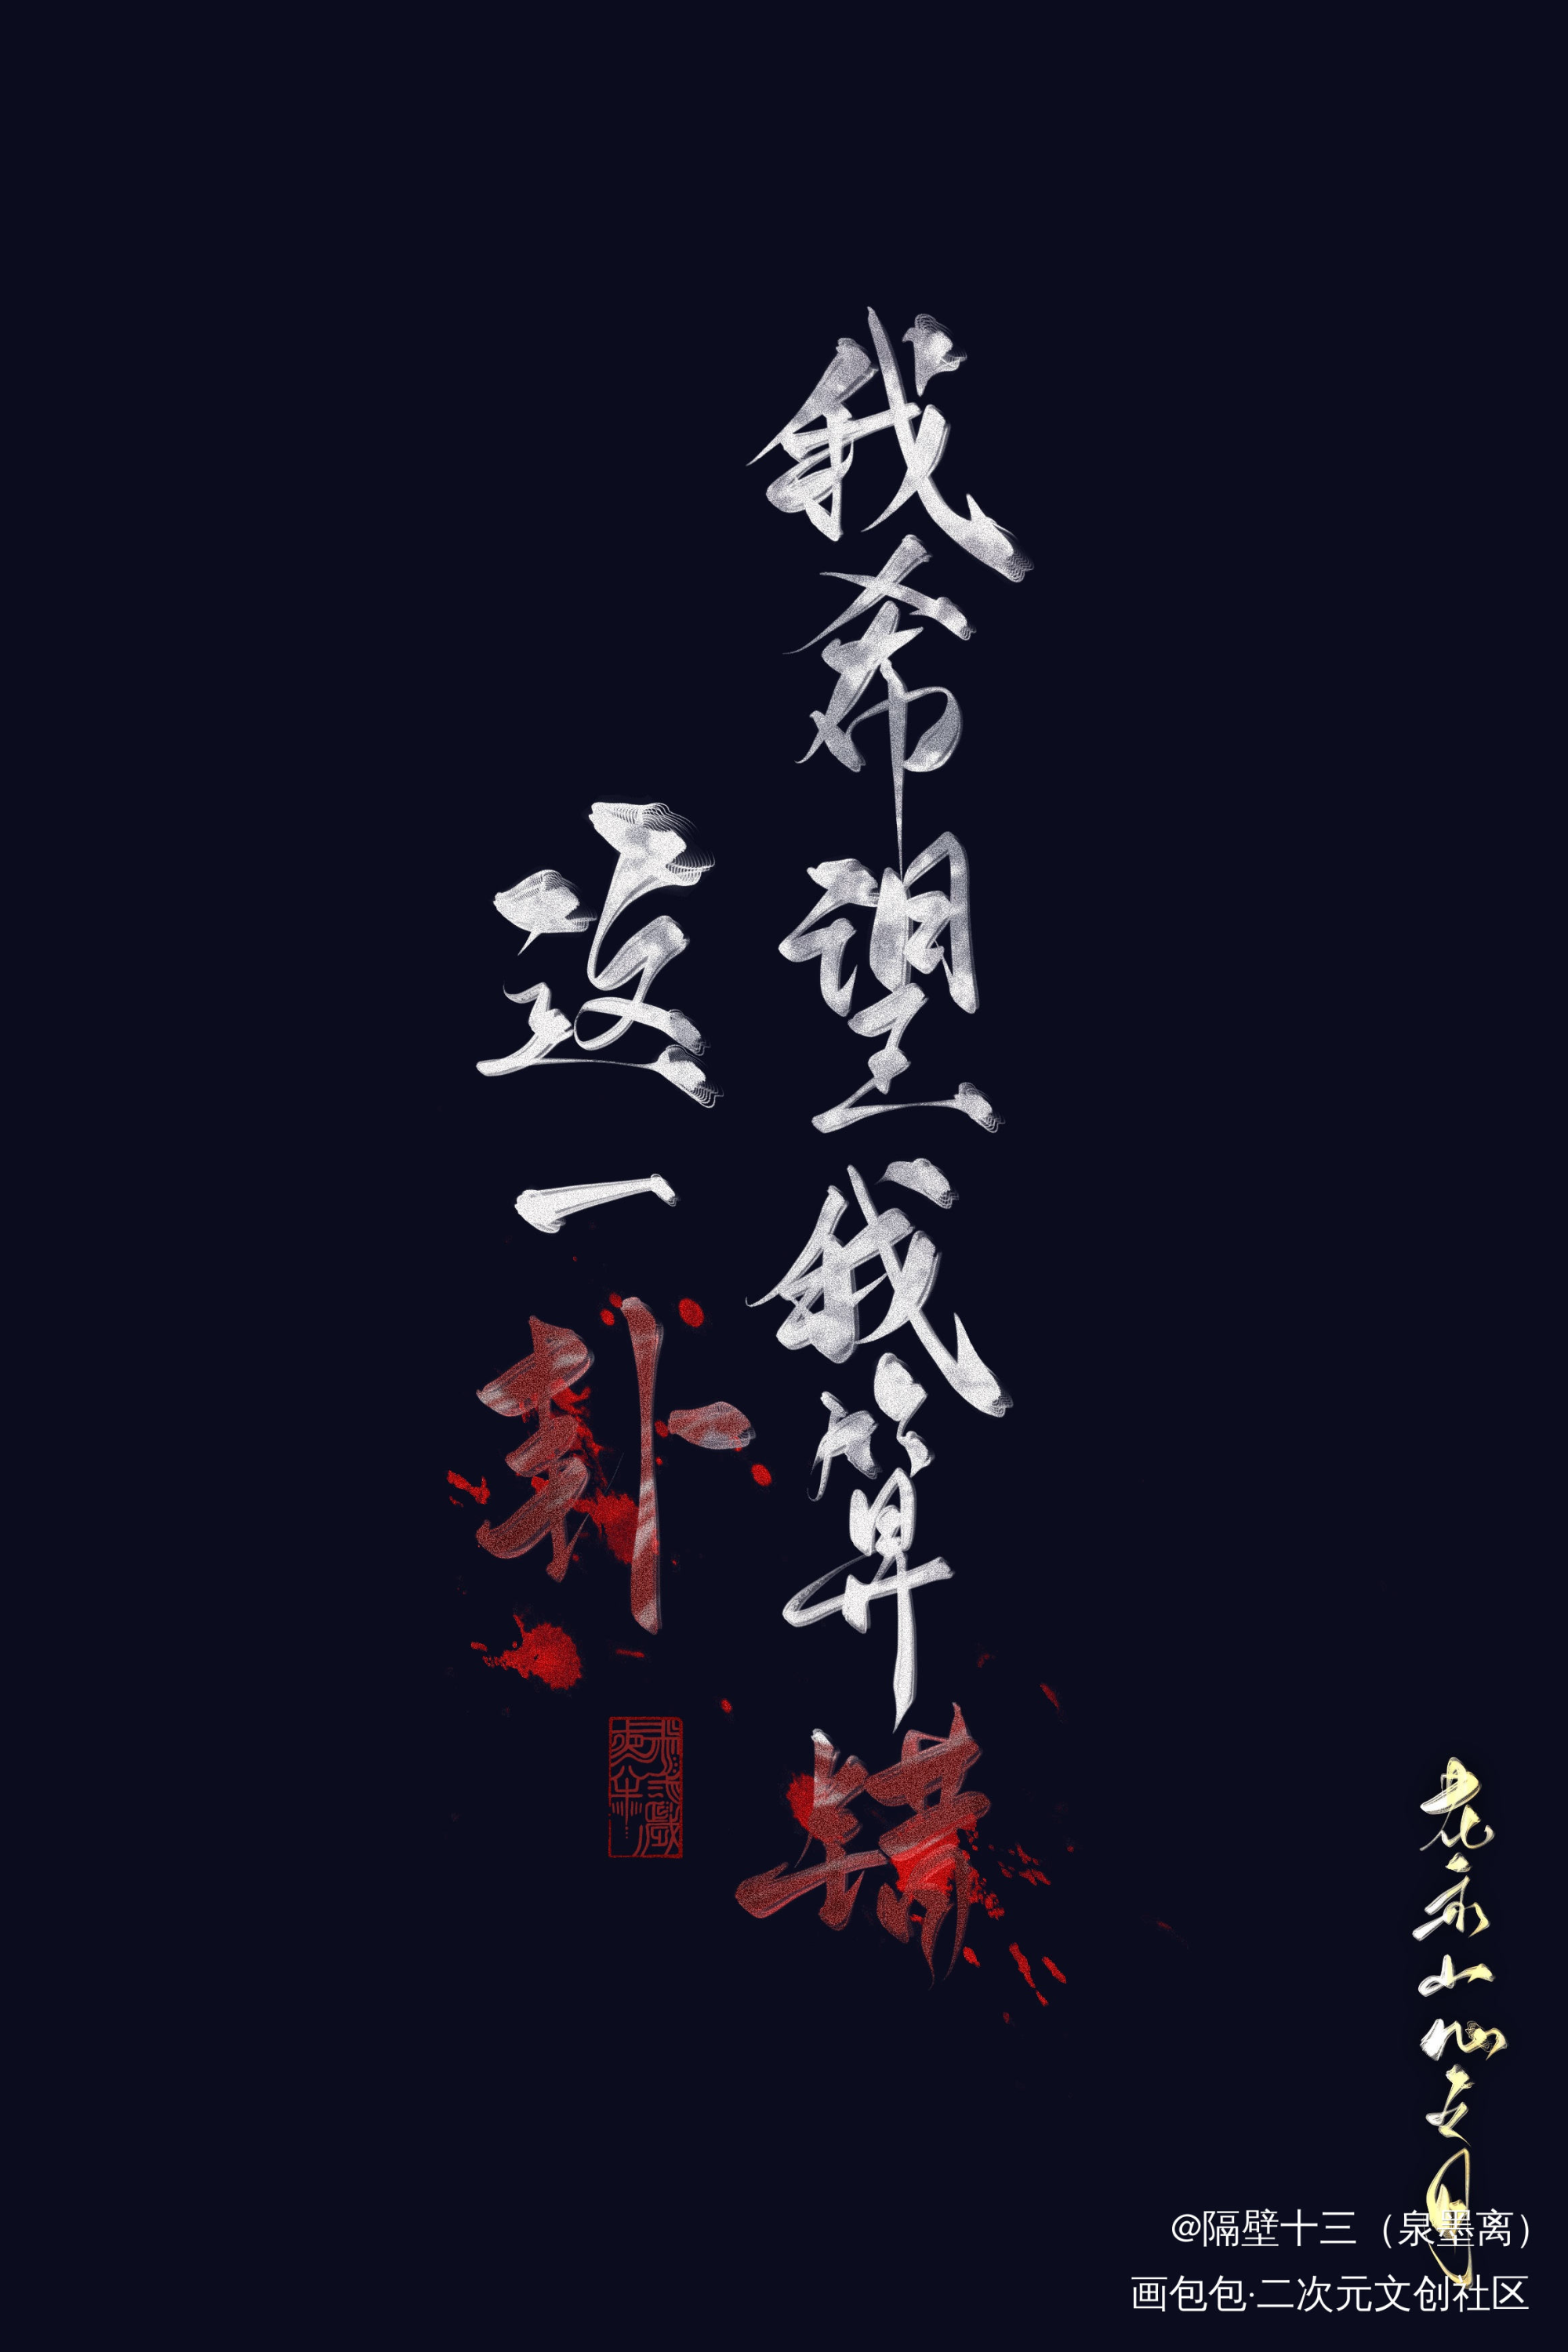 我希望我算错
这一卦
@隔壁十三（泉墨离）
画包包·二次元文创社区